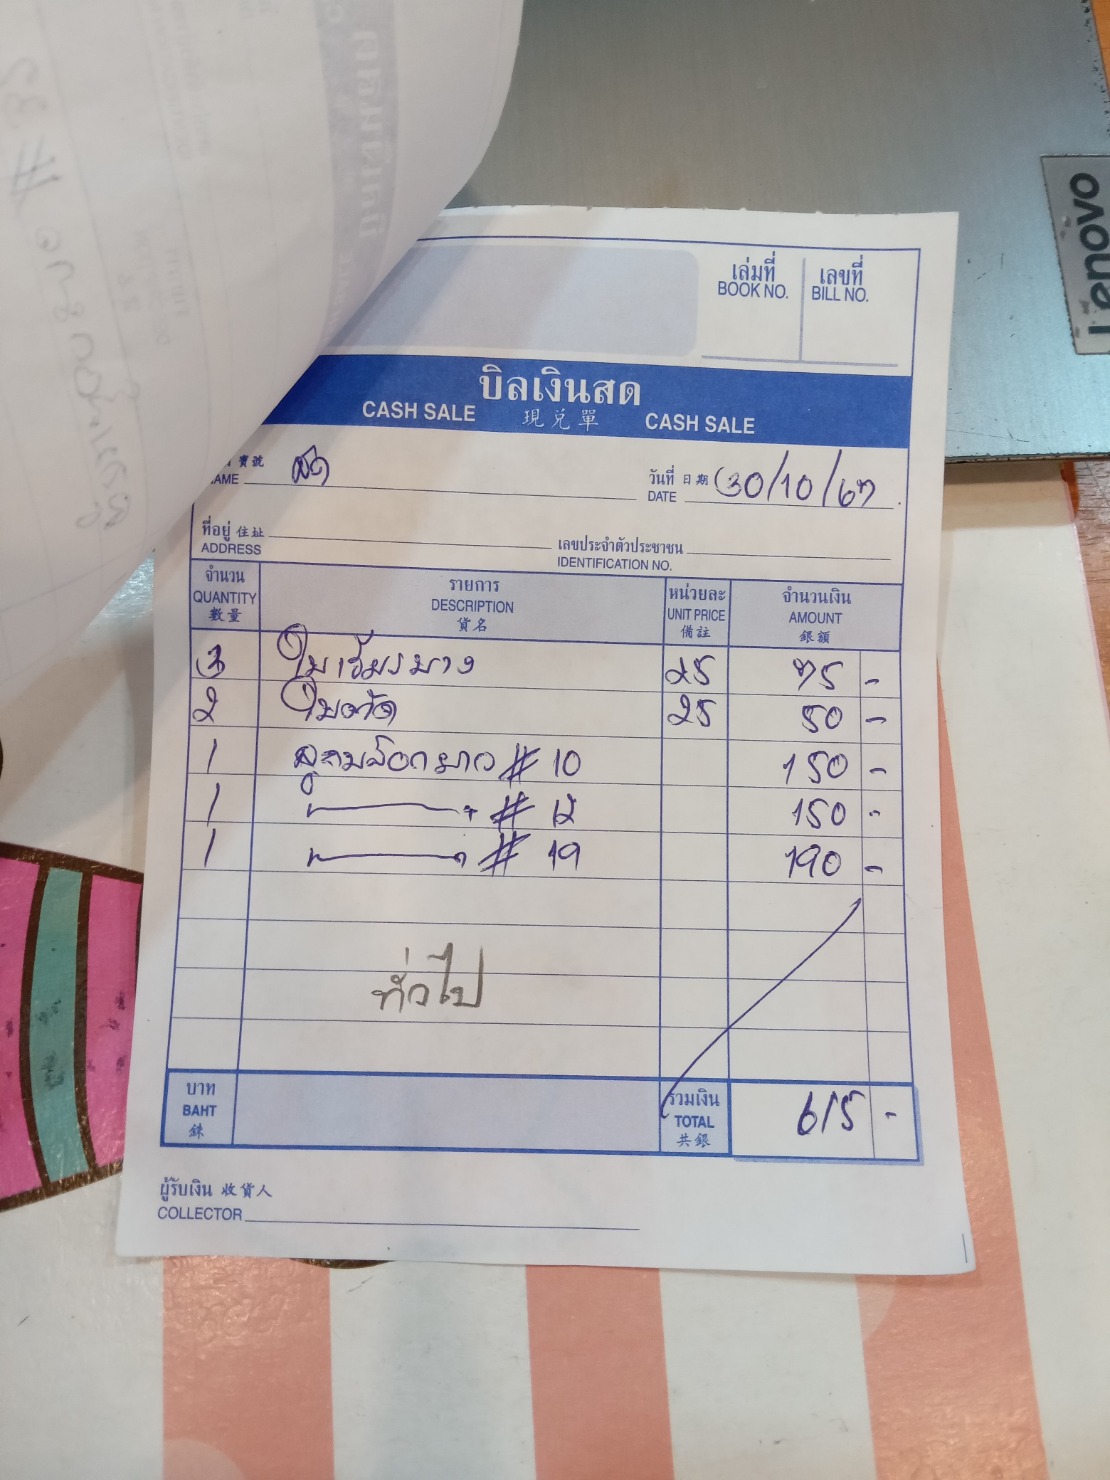 Lenovo
เล่มที่ เลขที่
BOOK NO. BILL NO.
บิลเงินสด
CASH SALE 現兌單 CASH SALE
寶號 วันที่ 日期 30/10/67
NAME DATE
ที่อยู่ 住址 เลขประจำตัวประชาชน
ADDRESS IDENTIFICATION NO.
จำนวน รายการ หน่วยละ จำนวนเงิน
QUANTITY DESCRIPTION UNIT PRICE AMOUNT
數量 貨名 備註 銀額
3 ใบเจียรบาง 25 75 -
2 ใบตัด 25 50 -
1 ลูกบล็อกยาว # 10 150 -
1 # 12 150 -
1 # 19 190 -
ทั่วไป
บาท รวมเงิน
BAHT TOTAL 615 -
銖 共銀
ผู้รับเงิน 收貨人
COLLECTOR